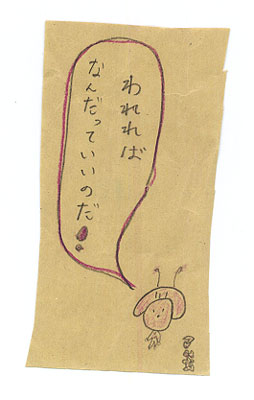 われれば
なんだっていいのだ!